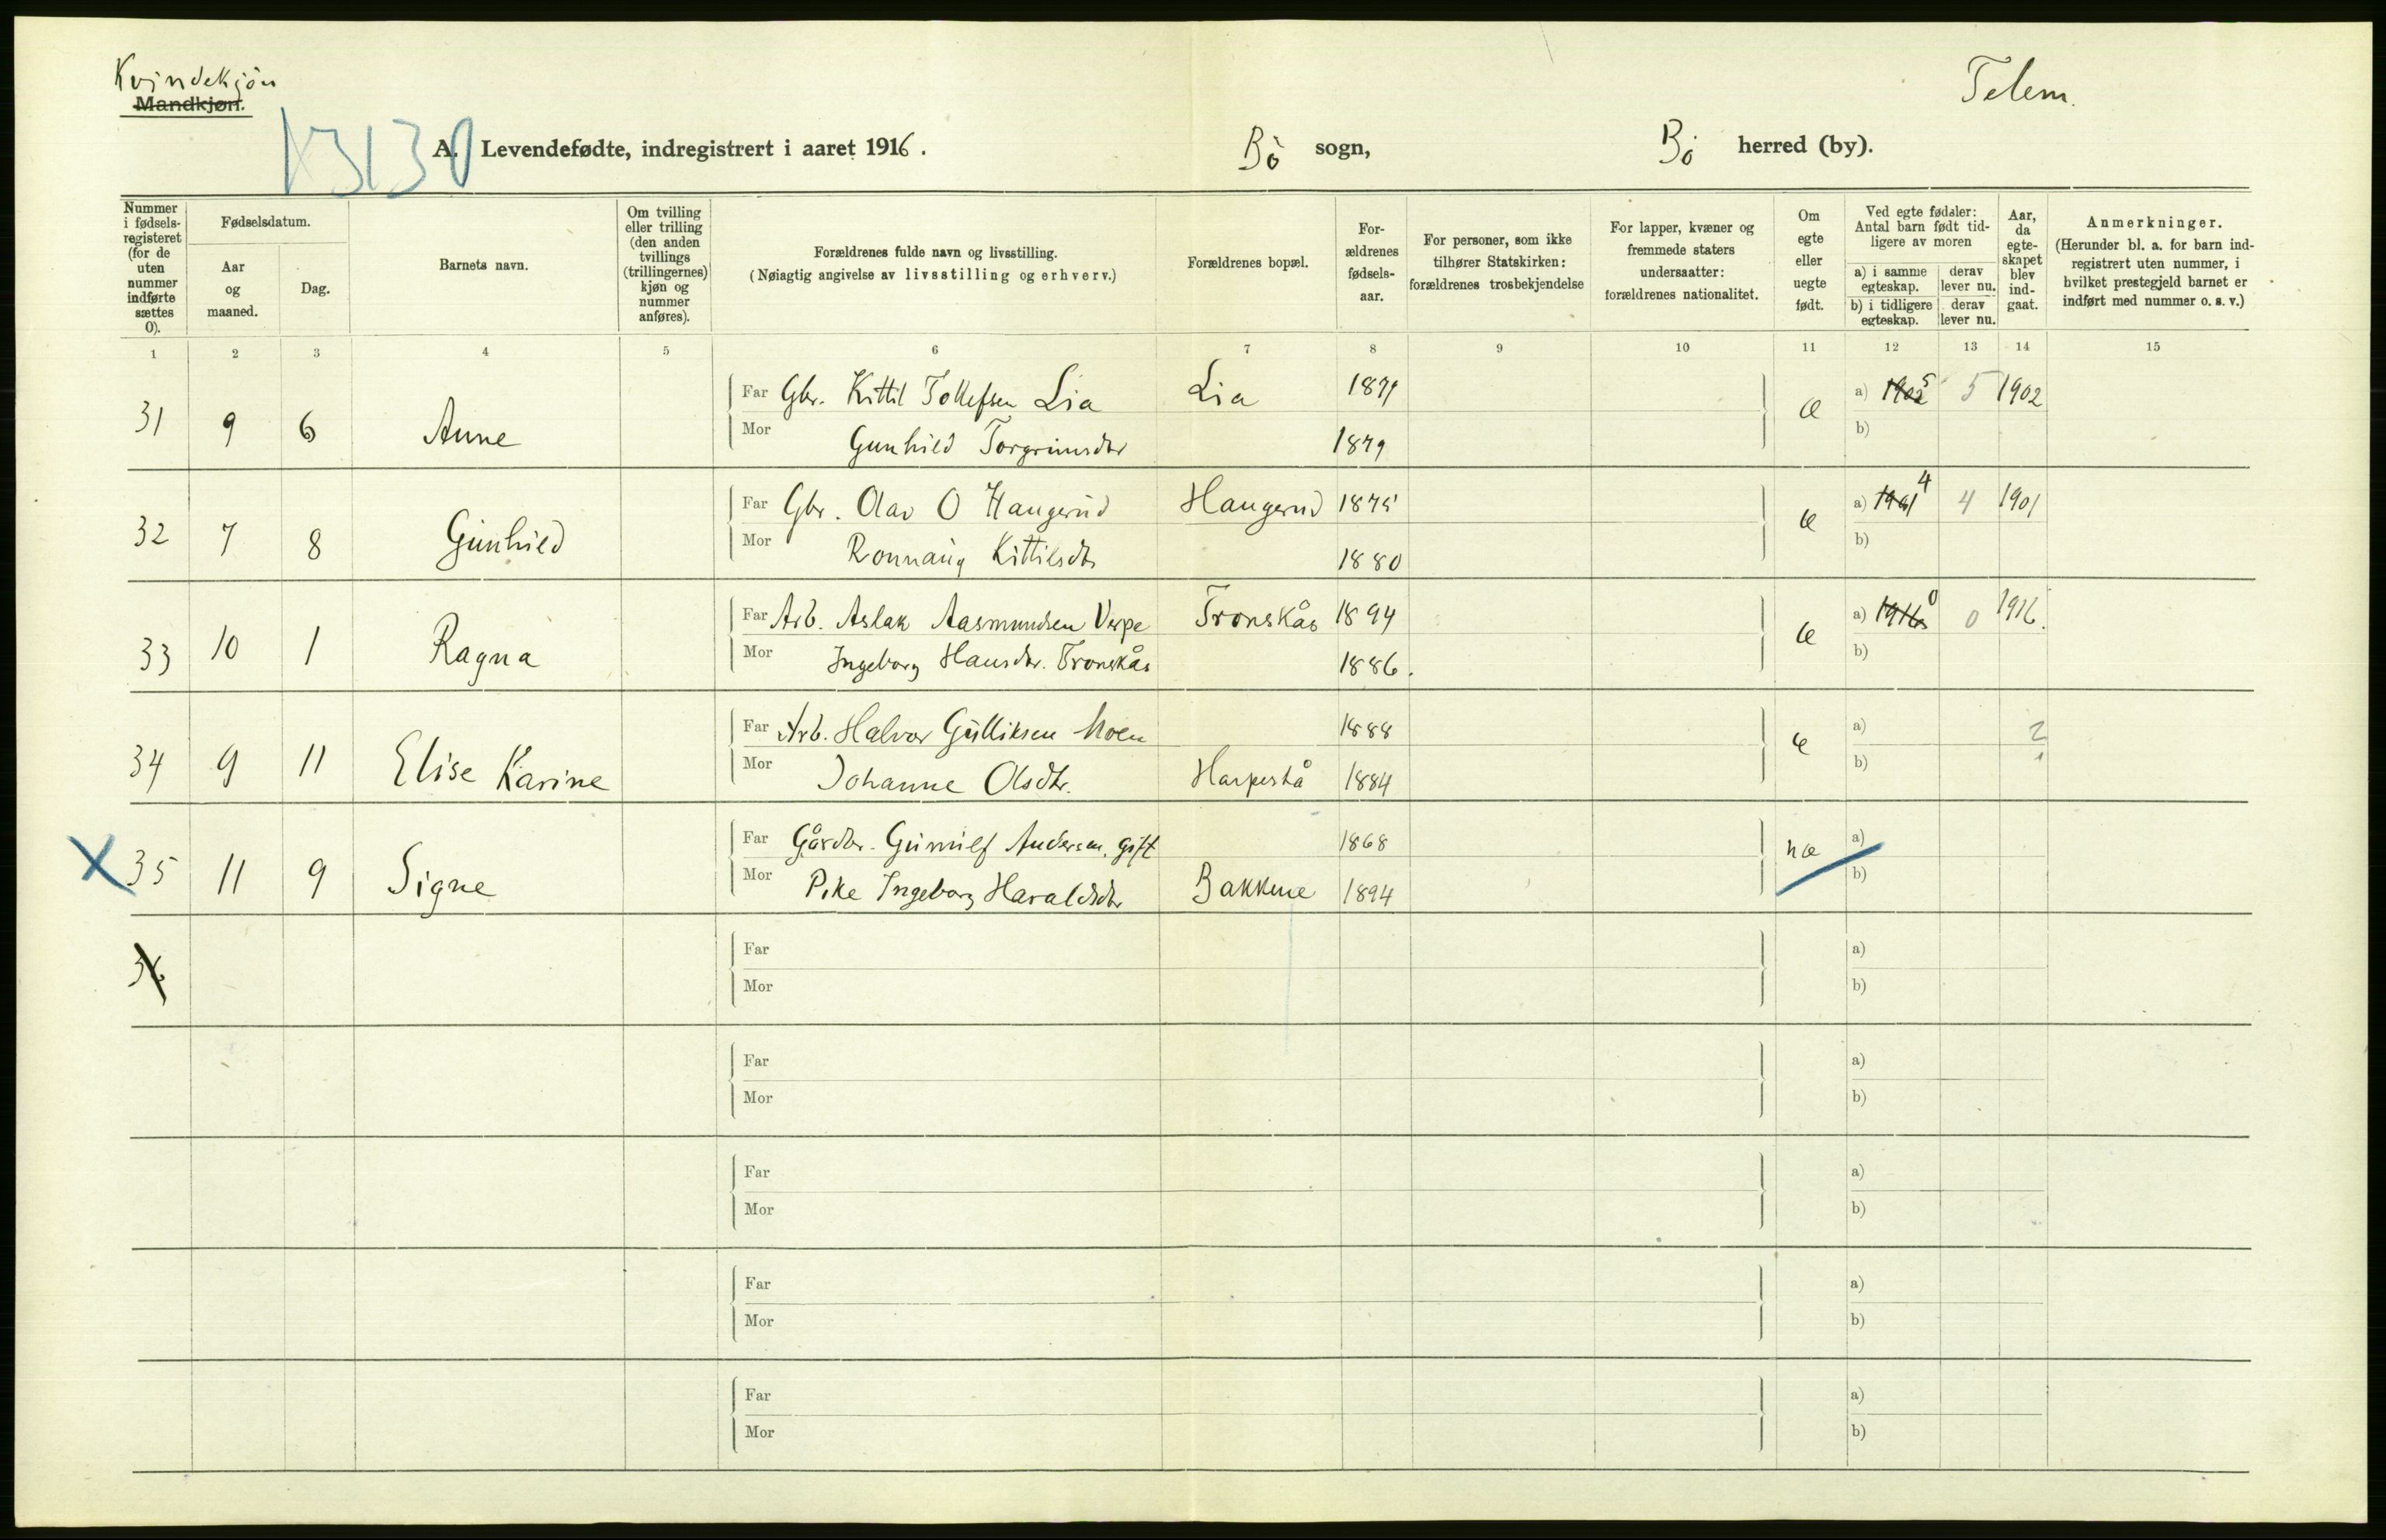 Kvindekjön
Mandkjøn.
Telem.
K3130
A. Levendefødte, indregistrert i aaret 1916. Bö sogn, Bö herred (by).
Nummer i fødsels-registeret (for de uten nummer indførte sættes 0).
Fødselsdatum.
Aar og maaned.
Dag.
Barnets navn.
Om tvilling eller trilling (den anden tvillings (trillingernes) kjøn og nummer anføres).
Forældrenes fulde navn og livsstilling.
(Nøiagtig angivelse av livsstilling og erhverv.)
Forældrenes bopæl.
For-ældrenes fødsels-aar.
For personer, som ikke tilhører Statskirken: forældrenes trosbekjendelse
For lapper, kvæner og fremmede staters undersaatter: forældrenes nationalitet.
Om egte eller uegte født.
Ved egte fødsler: Antal barn født tid-ligere av moren
a) i samme egteskap.
derav lever nu.
b) i tidligere egteskap.
derav lever nu.
Aar, da egte-skapet blev ind-gaat.
Anmerkninger.
(Herunder bl. a. for barn ind-registrert uten nummer, i hvilket prestegjeld barnet er indført med nummer o. s. v.)
1 2 3 4 5 6 7 8 9 10 11 12 13 14 15
Far Gbr. Kittil Tollefsen Lia Lia 1879 a) 1902 5 5 1902
31 9 6 Anne Mor Gunhild Torgrimsdtr 1879 æ b)
Far Gbr. Olav O Haugerud Haugerud 1875 a) 1901 4 4 1901
32 7 8 Gunhild Mor Ronnaug Kittilsdtr 1880 æ b)
Far Arb. Aslak Aasmundsen Verpe Tronskås 1894 a) 1916 0 0 1916.
33 10 1 Ragna Mor Ingeborg Hansdtr. Tronskås 1886. æ b)
Far Arb. Halvor Gulliksen Moen 1888 a) 2
34 9 11 Elise Karine Mor Johanne Olsdtr. 1884 æ b)
Far Gårdbr. Gunnulf Andersen. gift 1868 a)
X 35 11 9 Signe Mor Pike Ingeborg Haraldsdtr Bakkene 1894 uæ b)
36
Far a)
Mor b)
Far a)
Mor b)
Far a)
Mor b)
Far a)
Mor b)
Far a)
Mor b)